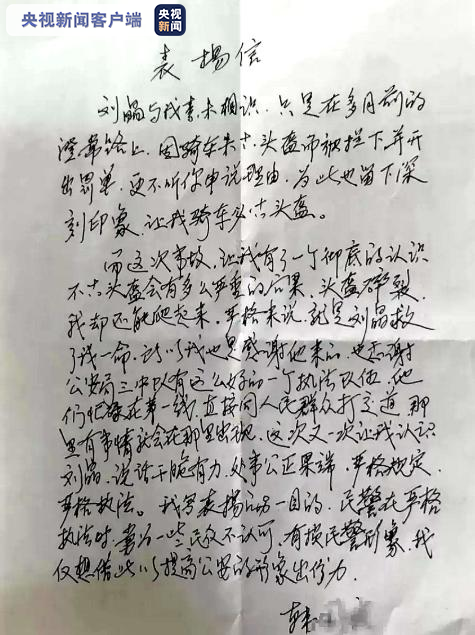 央视新闻客户端
央视新闻
表扬信
刘晶与我素未相识，只是在多月前的
路上，因骑车未 头盔而被拦下并开
出罚单，更不听你申说理由，为此也留下深
刻印象，让我骑车必 头盔。
而这次事故，让我有了一个彻底的认识
不 头盔会有多么严重的后果，头盔 裂，
我却还能爬起来，严格来说，就是刘晶救
了我一命，所以我也是感谢他来的，也感谢
公安局三中队有这么好的一个执法队伍，他
们忙 在第一线，直接同人民群众打交道，那
里有事情就会在那里出现，这次又一次让我认识
刘晶，说话干脆有力，处事公正果 ，严格规定，
严格执法。我写表扬 另一目的，民警在严格
执法时，常为一些民众不认可，有损民警形象，我
仅想借此以提高公安的形象出份力。
韩